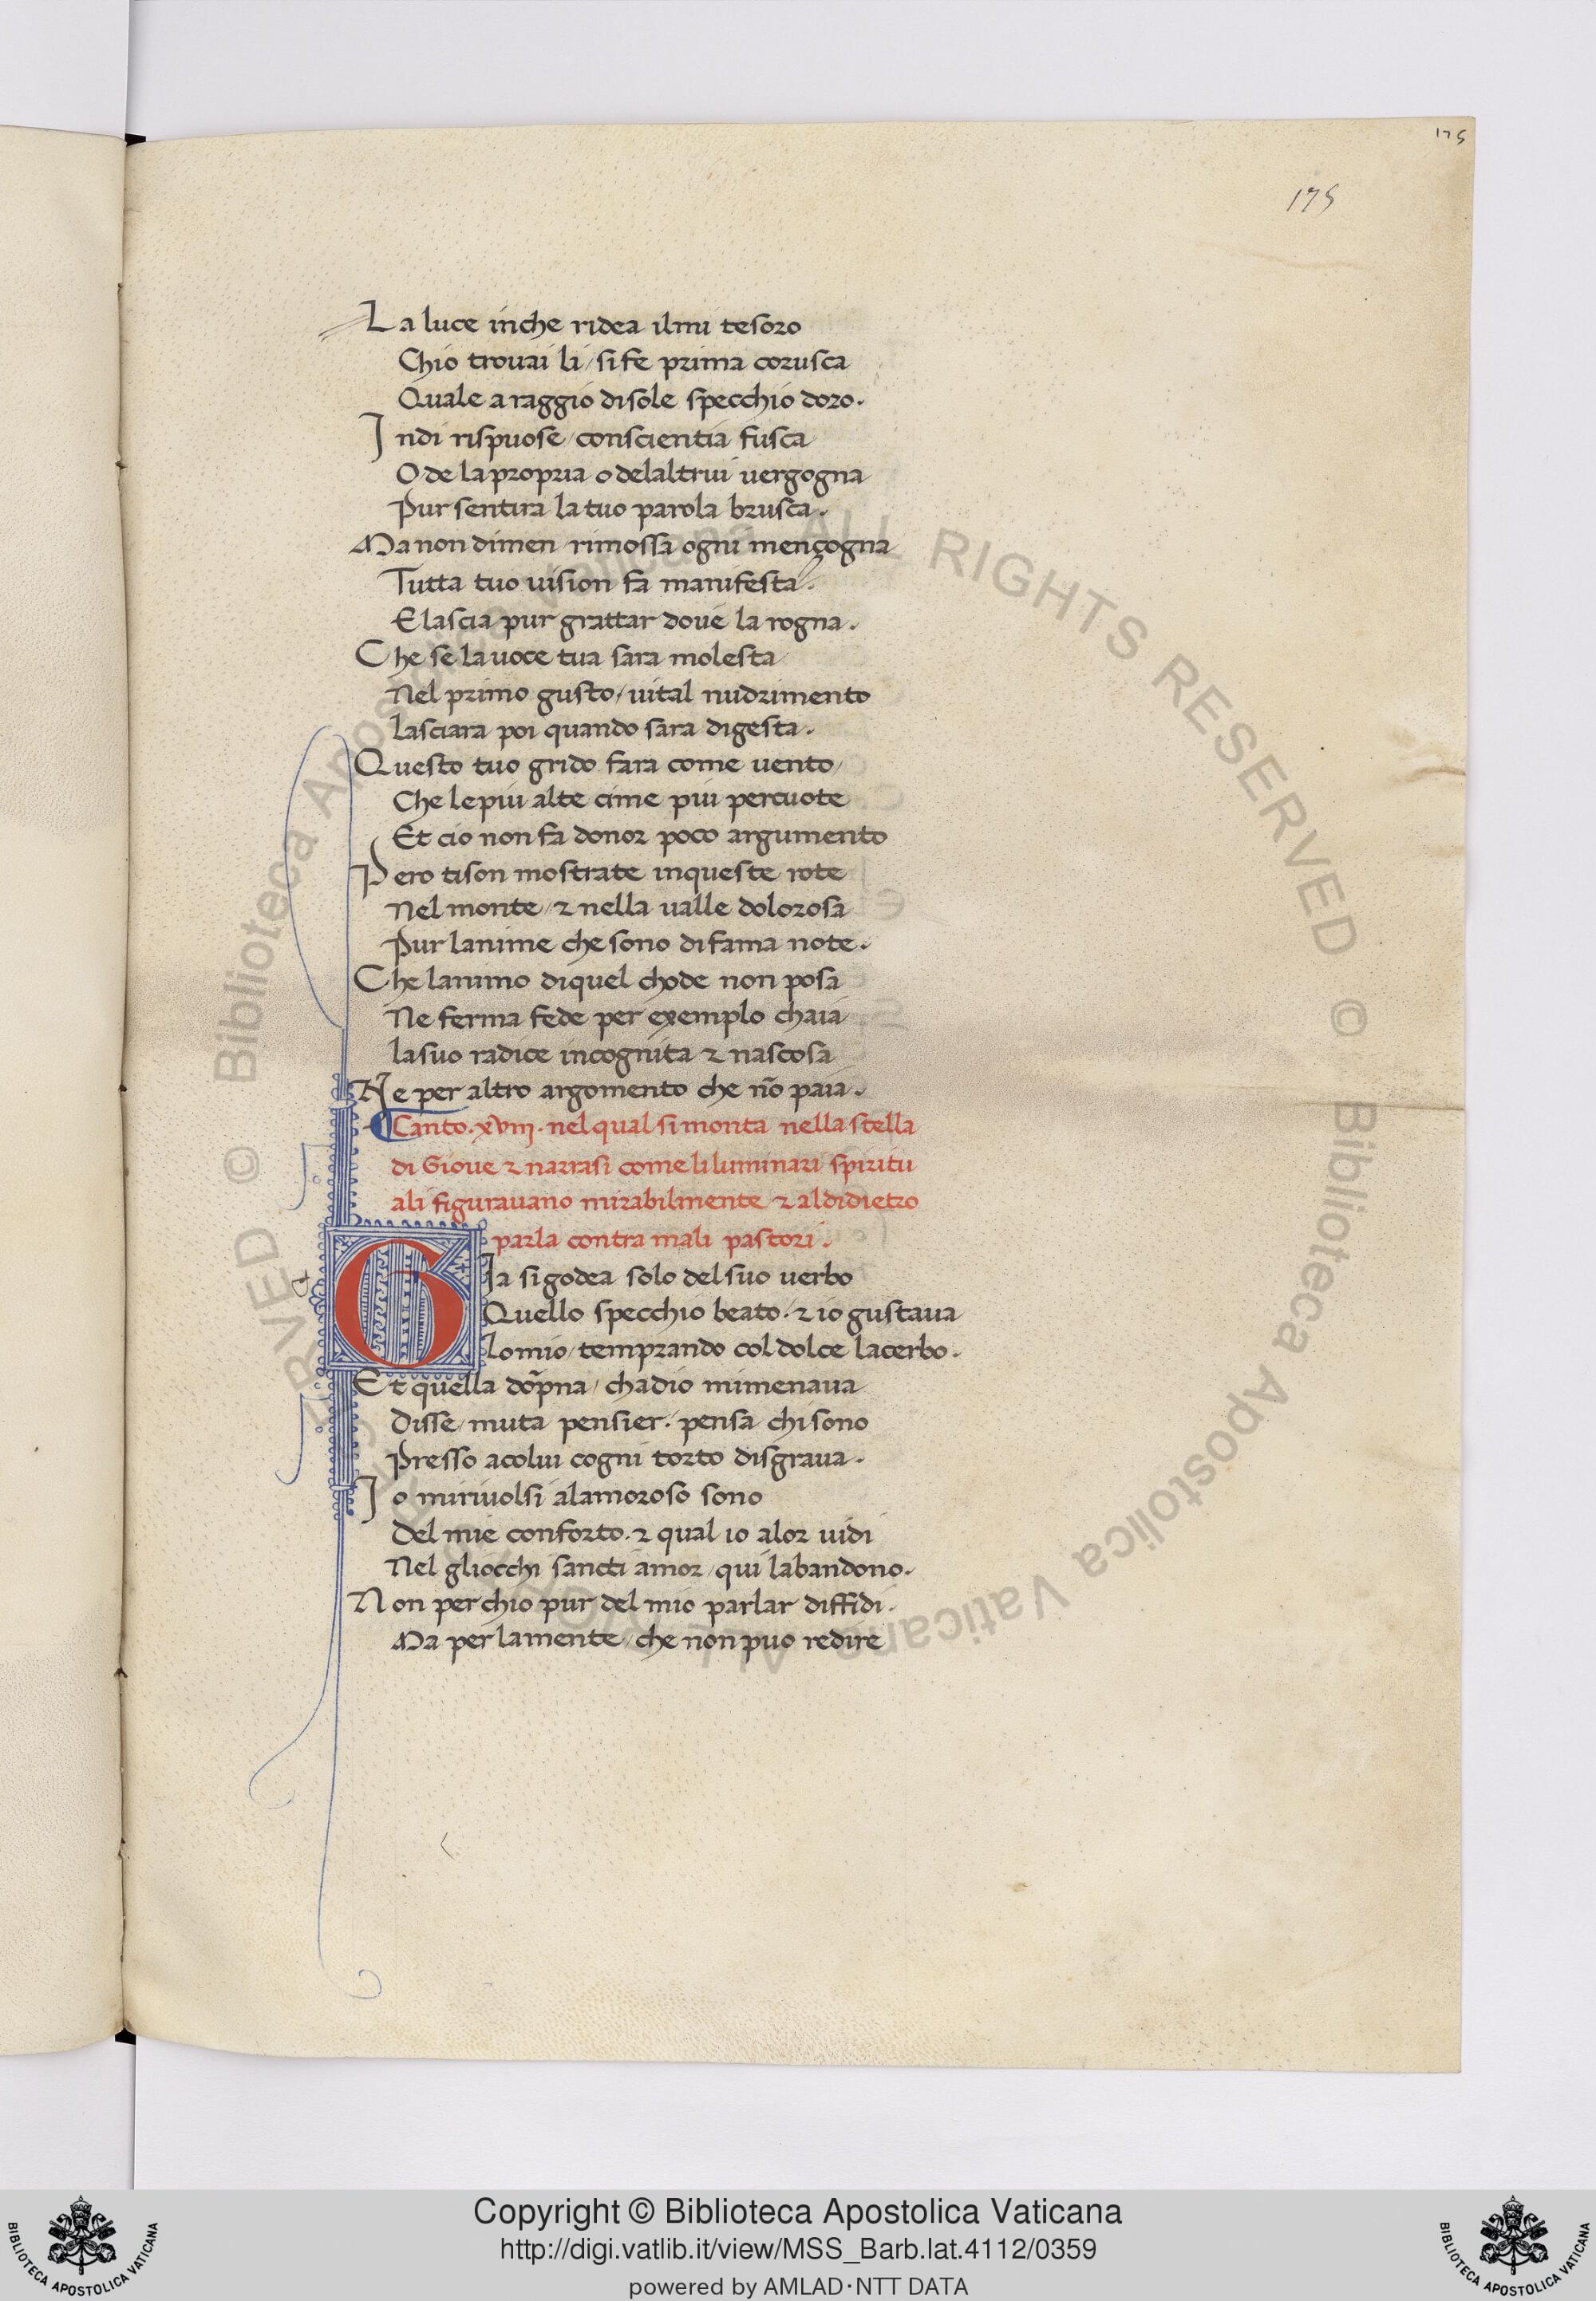 175
175
La luce inche ridea ilmi tesoro
Chio trovai li/ si fe prima corusca
Quale a raggio disole specchio doro.
Indi rispuose/ conscientia fusca
O de la propria o delaltrui vergogna
Pur sentira la tuo parola brusca.
Ma non dimen rimossa ogni mençogna
Tutta tuo vision fa manifesta.
E lascia pur grattar dove la rogna.
Che se la uoce tua sara molesta
Nel primo gusto/ vital nudrimento
lasciara poi quando sara digesta.
Questo tuo grido fara come uento/
Che lepiu alte cime piu percuote
Et cio non fa donor poco argumento
Pero tison mostrate inqueste rote
Nel monte/ & nella ualle dolorosa
Pur lanime che sono di fama note.
Che lanimo diquel chode non posa
Ne ferma fede per exemplo chaia
lasuo radice incognita & nascosa
Ne per altro argomento che nõ paia.
Canto. xviii. nel qual si monta nella stella
di Gioue & narrasi come li luminari spiritu
ali figurauano mirabilmente & al didietro
parla contra mali pastori.
GIa si godea solo del suo uerbo
Quello specchio beato. & io gustaua
lo mio/ temprando col dolce lacerbo.
Et quella dõpna/ chadio mimenaua
Disse/ muta pensier. pensa chi sono
Presso acolui cogni torto disgraua.
Io miriuolsi alamoroso sono
Del mie conforto. & qual io alor uidi
Nel gliocchi sancti amor/ qui labandono.
Non perchio pur del mio parlar diffidi.
Ma per lamente/ che non puo redire
© Biblioteca Apostolica Vaticana ALL RIGHTS RESERVED © Biblioteca Apostolica Vaticana ALL RIGHTS RESERVED
Copyright © Biblioteca Apostolica Vaticana
http://digi.vatlib.it/view/MSS_Barb.lat.4112/0359
powered by AMLAD·NTT DATA
BIBLIOTECA APOSTOLICA VATICANA
BIBLIOTECA APOSTOLICA VATICANA